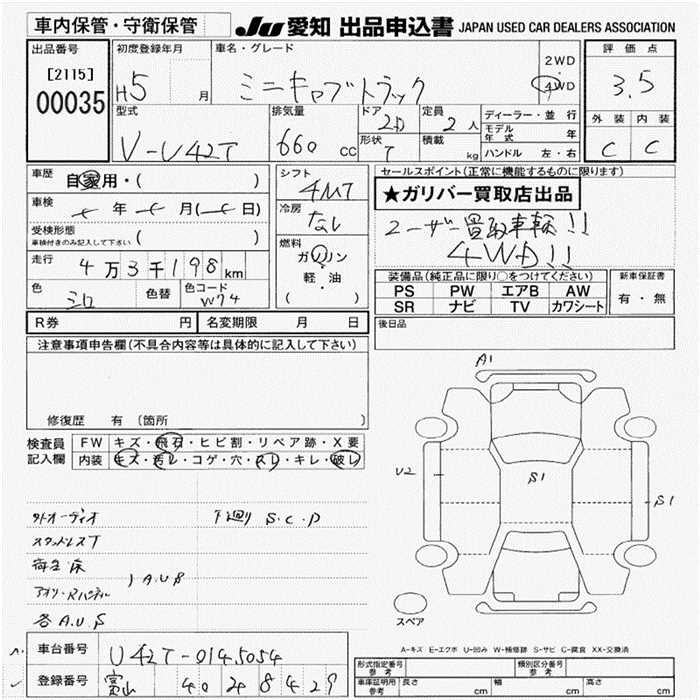 車内保管・守衛保管 JU 愛知 出品申込書 JAPAN USED CAR DEALERS ASSOCIATION
出品番号 初度登録年月 車名・グレード 評価点
[2115] H5 月 ミニキャブトラック 2WD 4WD 3.5
00035 外装 内装
型式 排気量 ドア 定員 ディーラー・並行
V-U42T 660 cc 2D 2人 モデル年式 年 C C
形状 T 積載 kg ハンドル 左・右
車歴 自家用・( ) シフト セールスポイント(正常に機能するものに限ります)
4MT ★ガリバー買取店出品
車検 年 月( 日) 冷房 なし ユーザー買取車輌!!
受検形態 4WD!!
車検付きのみ記入して下さい ( ) 燃料
走行 4万3千198km ガソリン 装備品(純正品に限り○をつけてください) 新車保証書
軽・油 PS PW エアB AW 有・無
色 シロ 色替 色コード W74 ( ) SR ナビ TV カワシート
R券 円 名変期限 月 日 後日品
注意事項申告欄(不具合内容等は具体的に記入して下さい)
修復歴 有 〔箇所 〕
検査員 FW キズ・飛石・ヒビ割・リペア跡・X要
記入欄 内装 キズ・汚レ・コゲ・穴・スレ・キレ・破レ
A1
U2 S1 S1
外オーディオ 下廻り S.C.P
スタッドレスT
荷台床
アオリ・Rパネル } A.U.S
各A.U.S
スペア
A-キズ E-エクボ U-凹み W-補修跡 S-サビ C-腐食 XX-交換済
車台番号 U42T-0145054
形式指定番号 参考 類別区分番号 参考
登録番号 富山 40 そ 8429 車庫証明用 参考 長さ cm 幅 cm 高さ cm